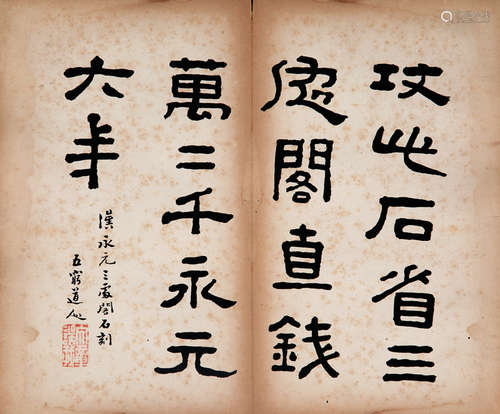 攻此石省三
處閣直錢
萬二千永元
六年
漢永元三處閣石刻
五窮道